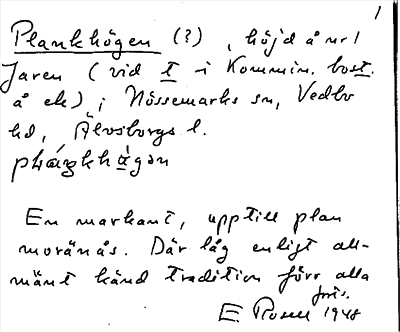 1
Plankhögen (?), höjd å nr 1
Jaren (vid t i Kommin. bost.
å ek), i Nössemarks sn, Vedbo
hd, Älvsborgs l.
En markant, upptill plan
moränås. Där låg enligt all-
mänt känd tradition förr alla
E. Rosell 1948